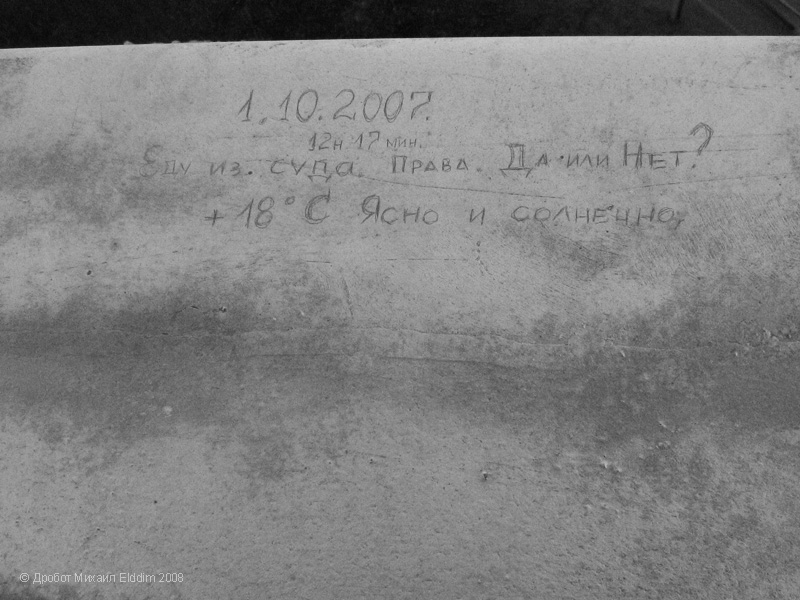 1.10.2007.
12ч 17 мин.
Еду из. суда. Права. Да или Нет?
+18°C Ясно и солнечно,
© Дробот Михаил Elddim 2008